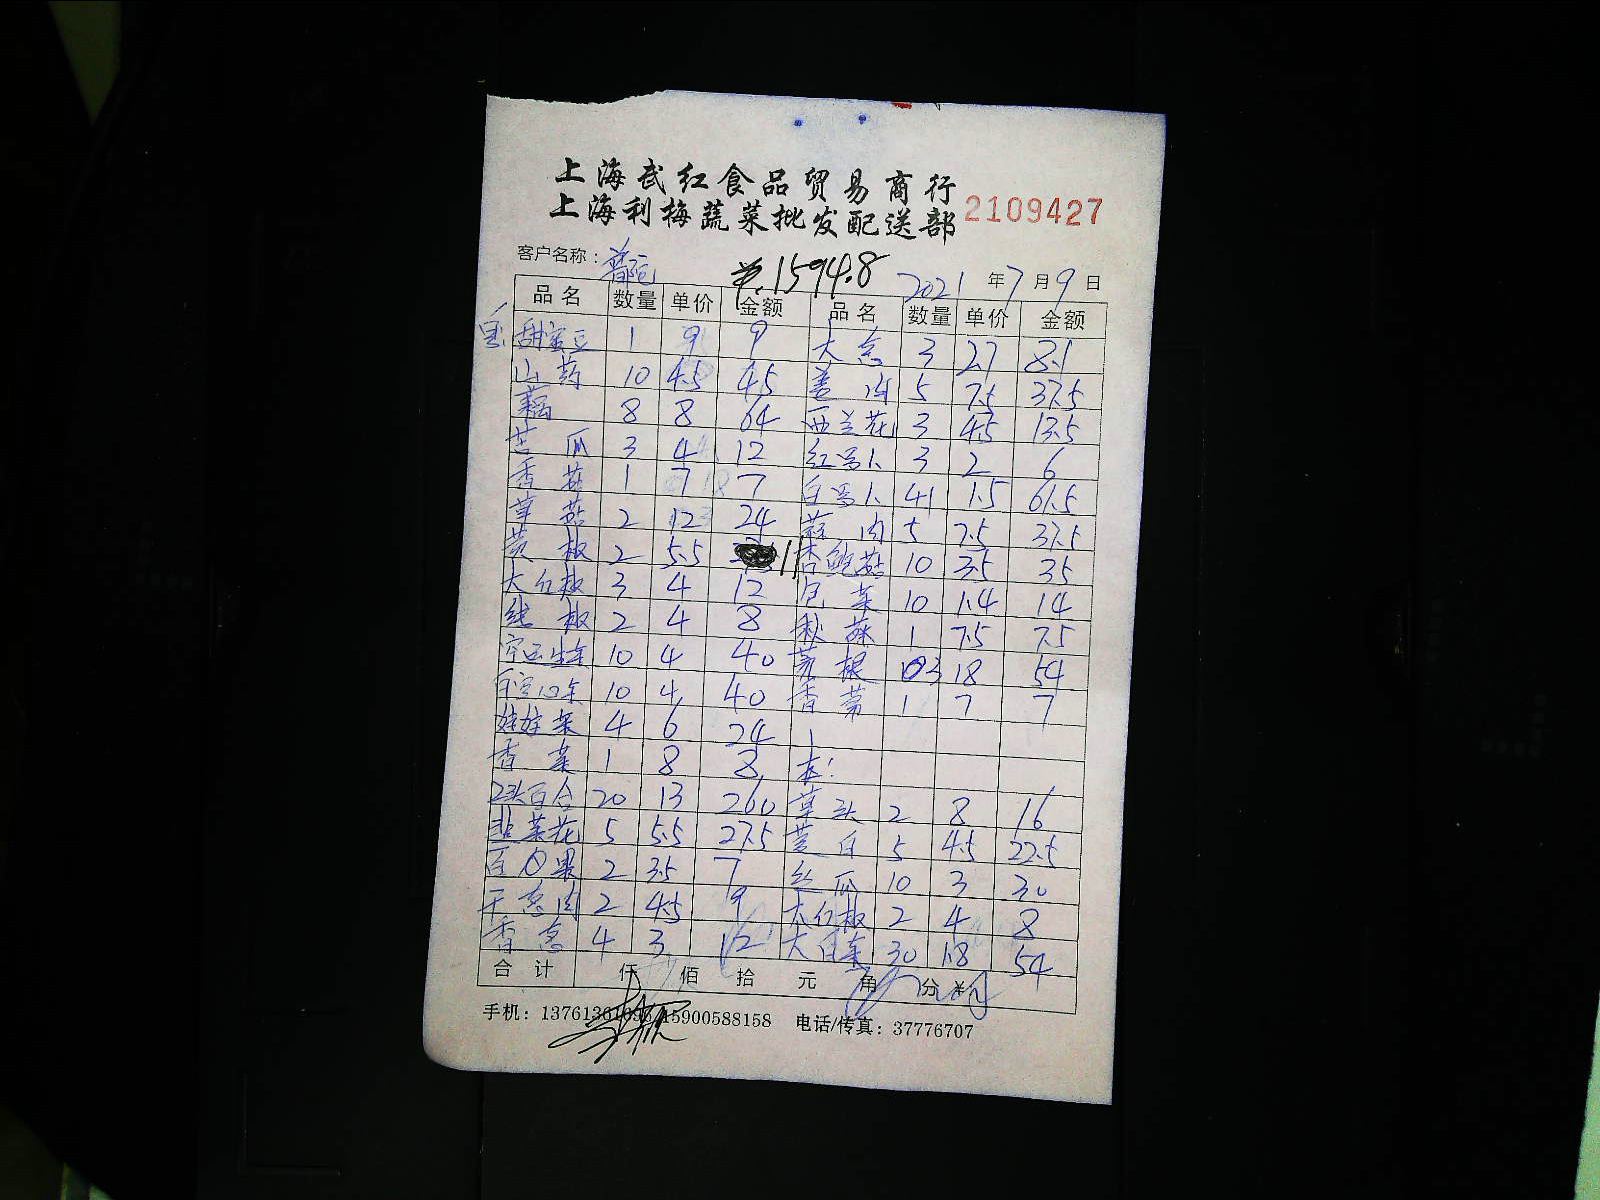 上海武红食品贸易商行
上海利梅蔬菜批发配送部 2109427
客户名称： ¥.1594.8 2021年7月9日
品名 数量 单价 金额 品名 数量 单价 金额
甜蜜豆 1 9 9 大葱 3 2.7 8.1
山药 10 4.5 45 姜肉 5 7.5 37.5
藕 8 8 64 西兰花 3 4.5 13.5
苦瓜 3 4 12 红罗卜 3 2 6
香菇 1 7 7 白罗卜 41 1.5 61.5
草菇 2 12 24 蒜肉 5 7.5 37.5
黄椒 2 5.5 11 杏鲍菇 10 3.5 35
大红椒 3 4 12 包菜 10 1.4 14
线椒 2 4 8 秋葵 1 7.5 7.5
10 4 40 3 18 54
10 4 40 香 1 7 7
娃娃菜 4 6 24
香菜 1 8 8
2头百合 20 13 260 草头 2 8 16
韭菜花 5 5.5 27.5 茭白 5 4.5 22.5
百果 2 3.5 7 丝瓜 10 3 30
干葱肉 2 4.5 9 大红椒 2 4 8
香葱 4 3 12 大白菜 30 1.8 54
合计 仟 佰 拾 元 角 分 ¥
手机：15900588158 电话/传真：37776707